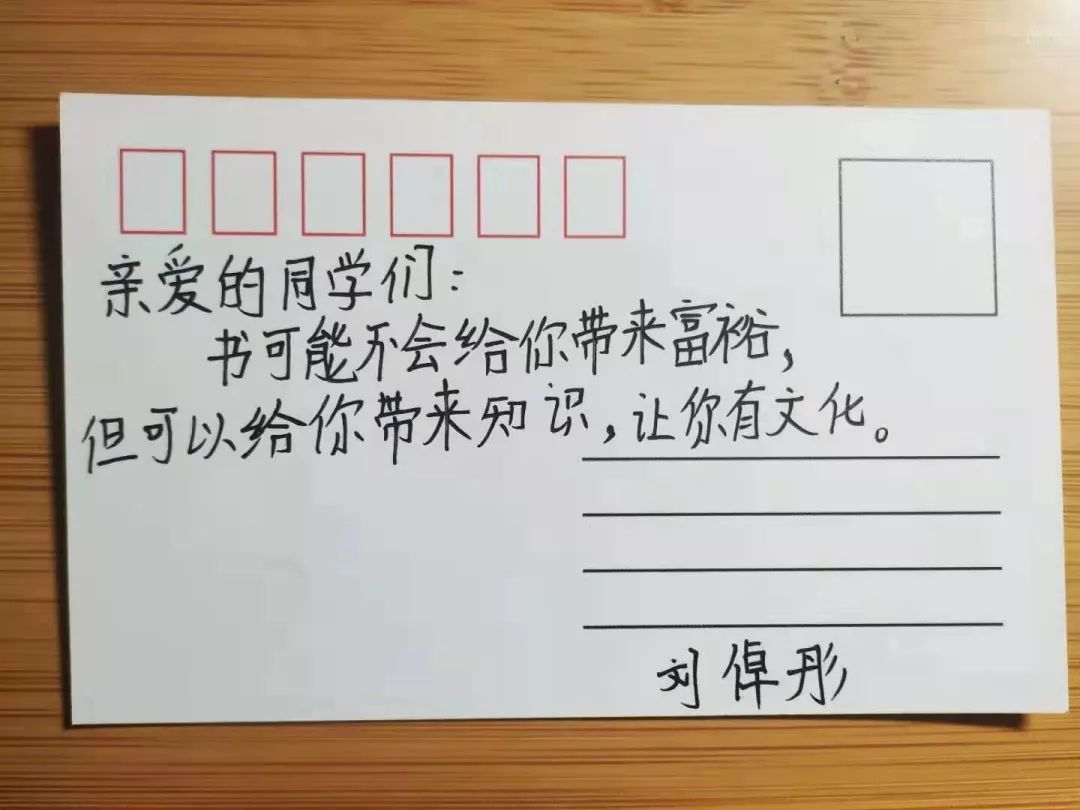 亲爱的同学们：
书可能不会给你带来富裕，
但可以给你带来知识，让你有文化。
刘倬彤